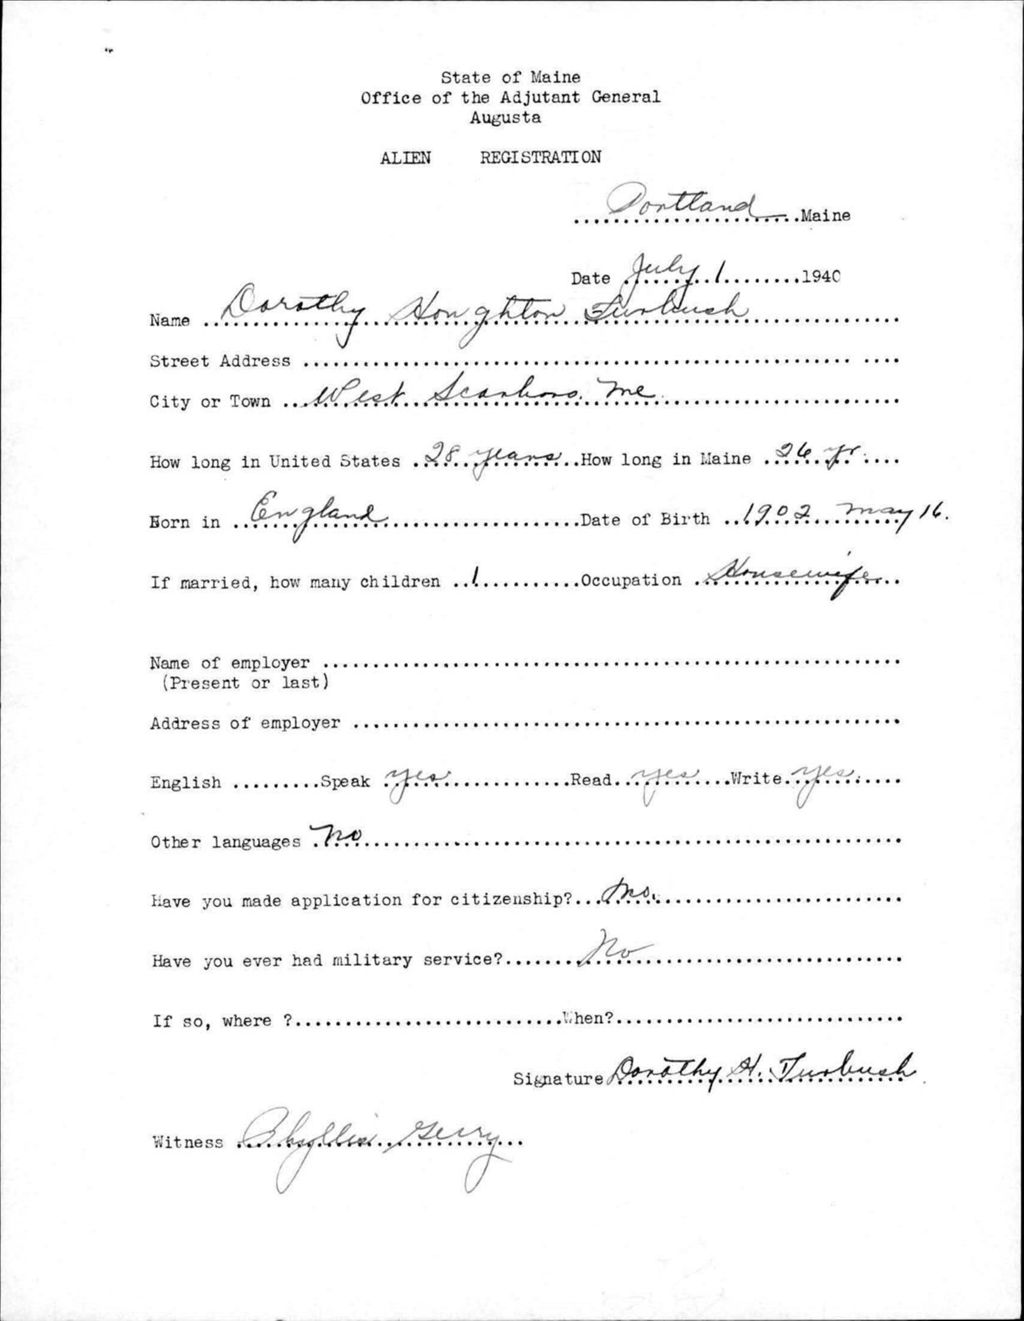 State of Maine
Office of the Adjutant General
Augusta
ALIEN REGISTRATION
Portland Maine
Date July 1 1940
Name Dorothy Houghton Furbush
Street Address
City or Town West Scarboro, Me
How long in United States 28 years How long in Maine 26 yr.
Born in England Date of Birth 1902 May 16.
If married, how many children 1 Occupation Housewife
Name of employer
(Present or last)
Address of employer
English Speak yes Read yes Write yes
Other languages No
Have you made application for citizenship? No.
Have you ever had military service? No
If so, where ? When?
Signature Dorothy H. Furbush
Witness Phyllis Gerry